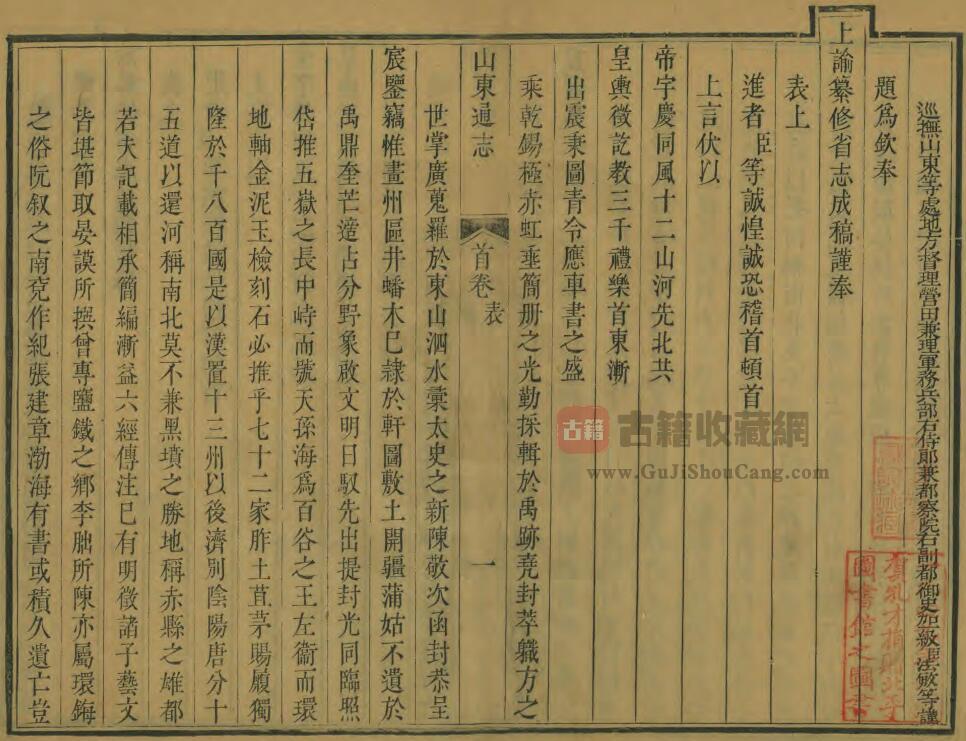 巡撫山東等處地方督理營田兼理軍務兵部右侍郎兼都察院右副都御史加級臣法敏等謹
題爲欽奉
上諭纂修省志成稿謹奉
表上
進者臣等誠惶誠恐稽首頓首
上言伏以
帝宇慶同風十二山河先北共
皇輿徵訖教三千禮樂首東漸
出震秉圖青令應車書之盛
乘乾錫極赤虹垂簡册之光勤採輯於禹跡堯封萃職方之
山東通志
首卷 表
一
世掌廣蒐羅於東山泗水彙太史之新陳敬次函封恭呈
宸鑒竊惟畫州區井蟠木巳隷於軒圖敷土開疆蒲姑不遺於
禹鼎奎芒逹占分野象啟文明日馭先出提封光同臨照
岱推五嶽之長中峙而號天孫海爲百谷之王左衞而環
地軸金泥玉檢刻石必推乎七十二家胙土苴茅賜履獨
隆於千八百國是以漢置十三州以後濟別陰陽唐分十
五道以還河稱南北莫不兼黑墳之勝地稱赤縣之雄都
若夫記載相承簡編漸益六經傳注巳有明徵諸子藝文
皆堪節取晏謨所撰曾專鹽鐵之鄉李朏所陳亦屬環鋂
之俗阮叙之南兖作紀張建章渤海有書或積久遺亡豈
古籍
古籍收藏網
www.GuJiShouCang.com